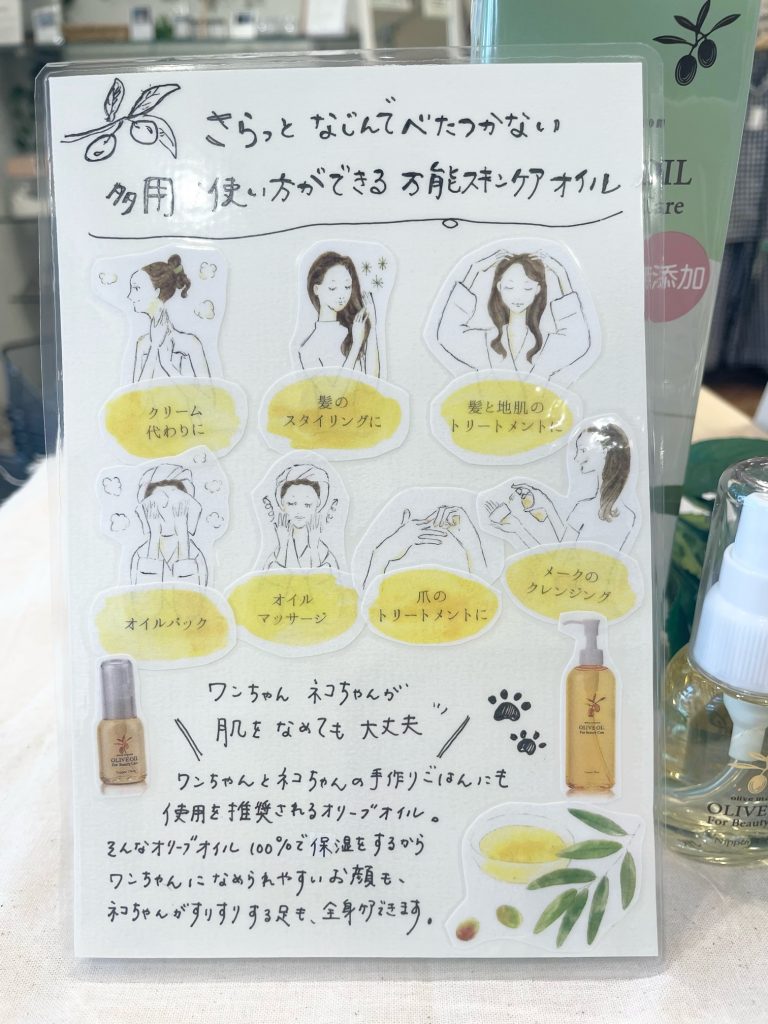 さらっと なじんでべたつかない
多用 使い方ができる 万能スキンケアオイル
クリーム
代わりに
髪の
スタイリングに
髪と地肌の
トリートメントに
オイルパック
オイル
マッサージ
爪の
トリートメントに
メークの
クレンジング
ワンちゃん ネコちゃんが
肌をなめても 大丈夫
ワンちゃんとネコちゃんの手作りごはんにも
使用を推奨されるオリーブオイル。
そんなオリーブオイル 100%で保湿をするから
ワンちゃんになめられやすいお顔も、
ネコちゃんがすりすりする足も、全身ケアできます。
OLIVE OIL
For Beauty Care
OLIVE OIL
For Beauty Care
OIL
are
添加
OLIVE
For Beauty